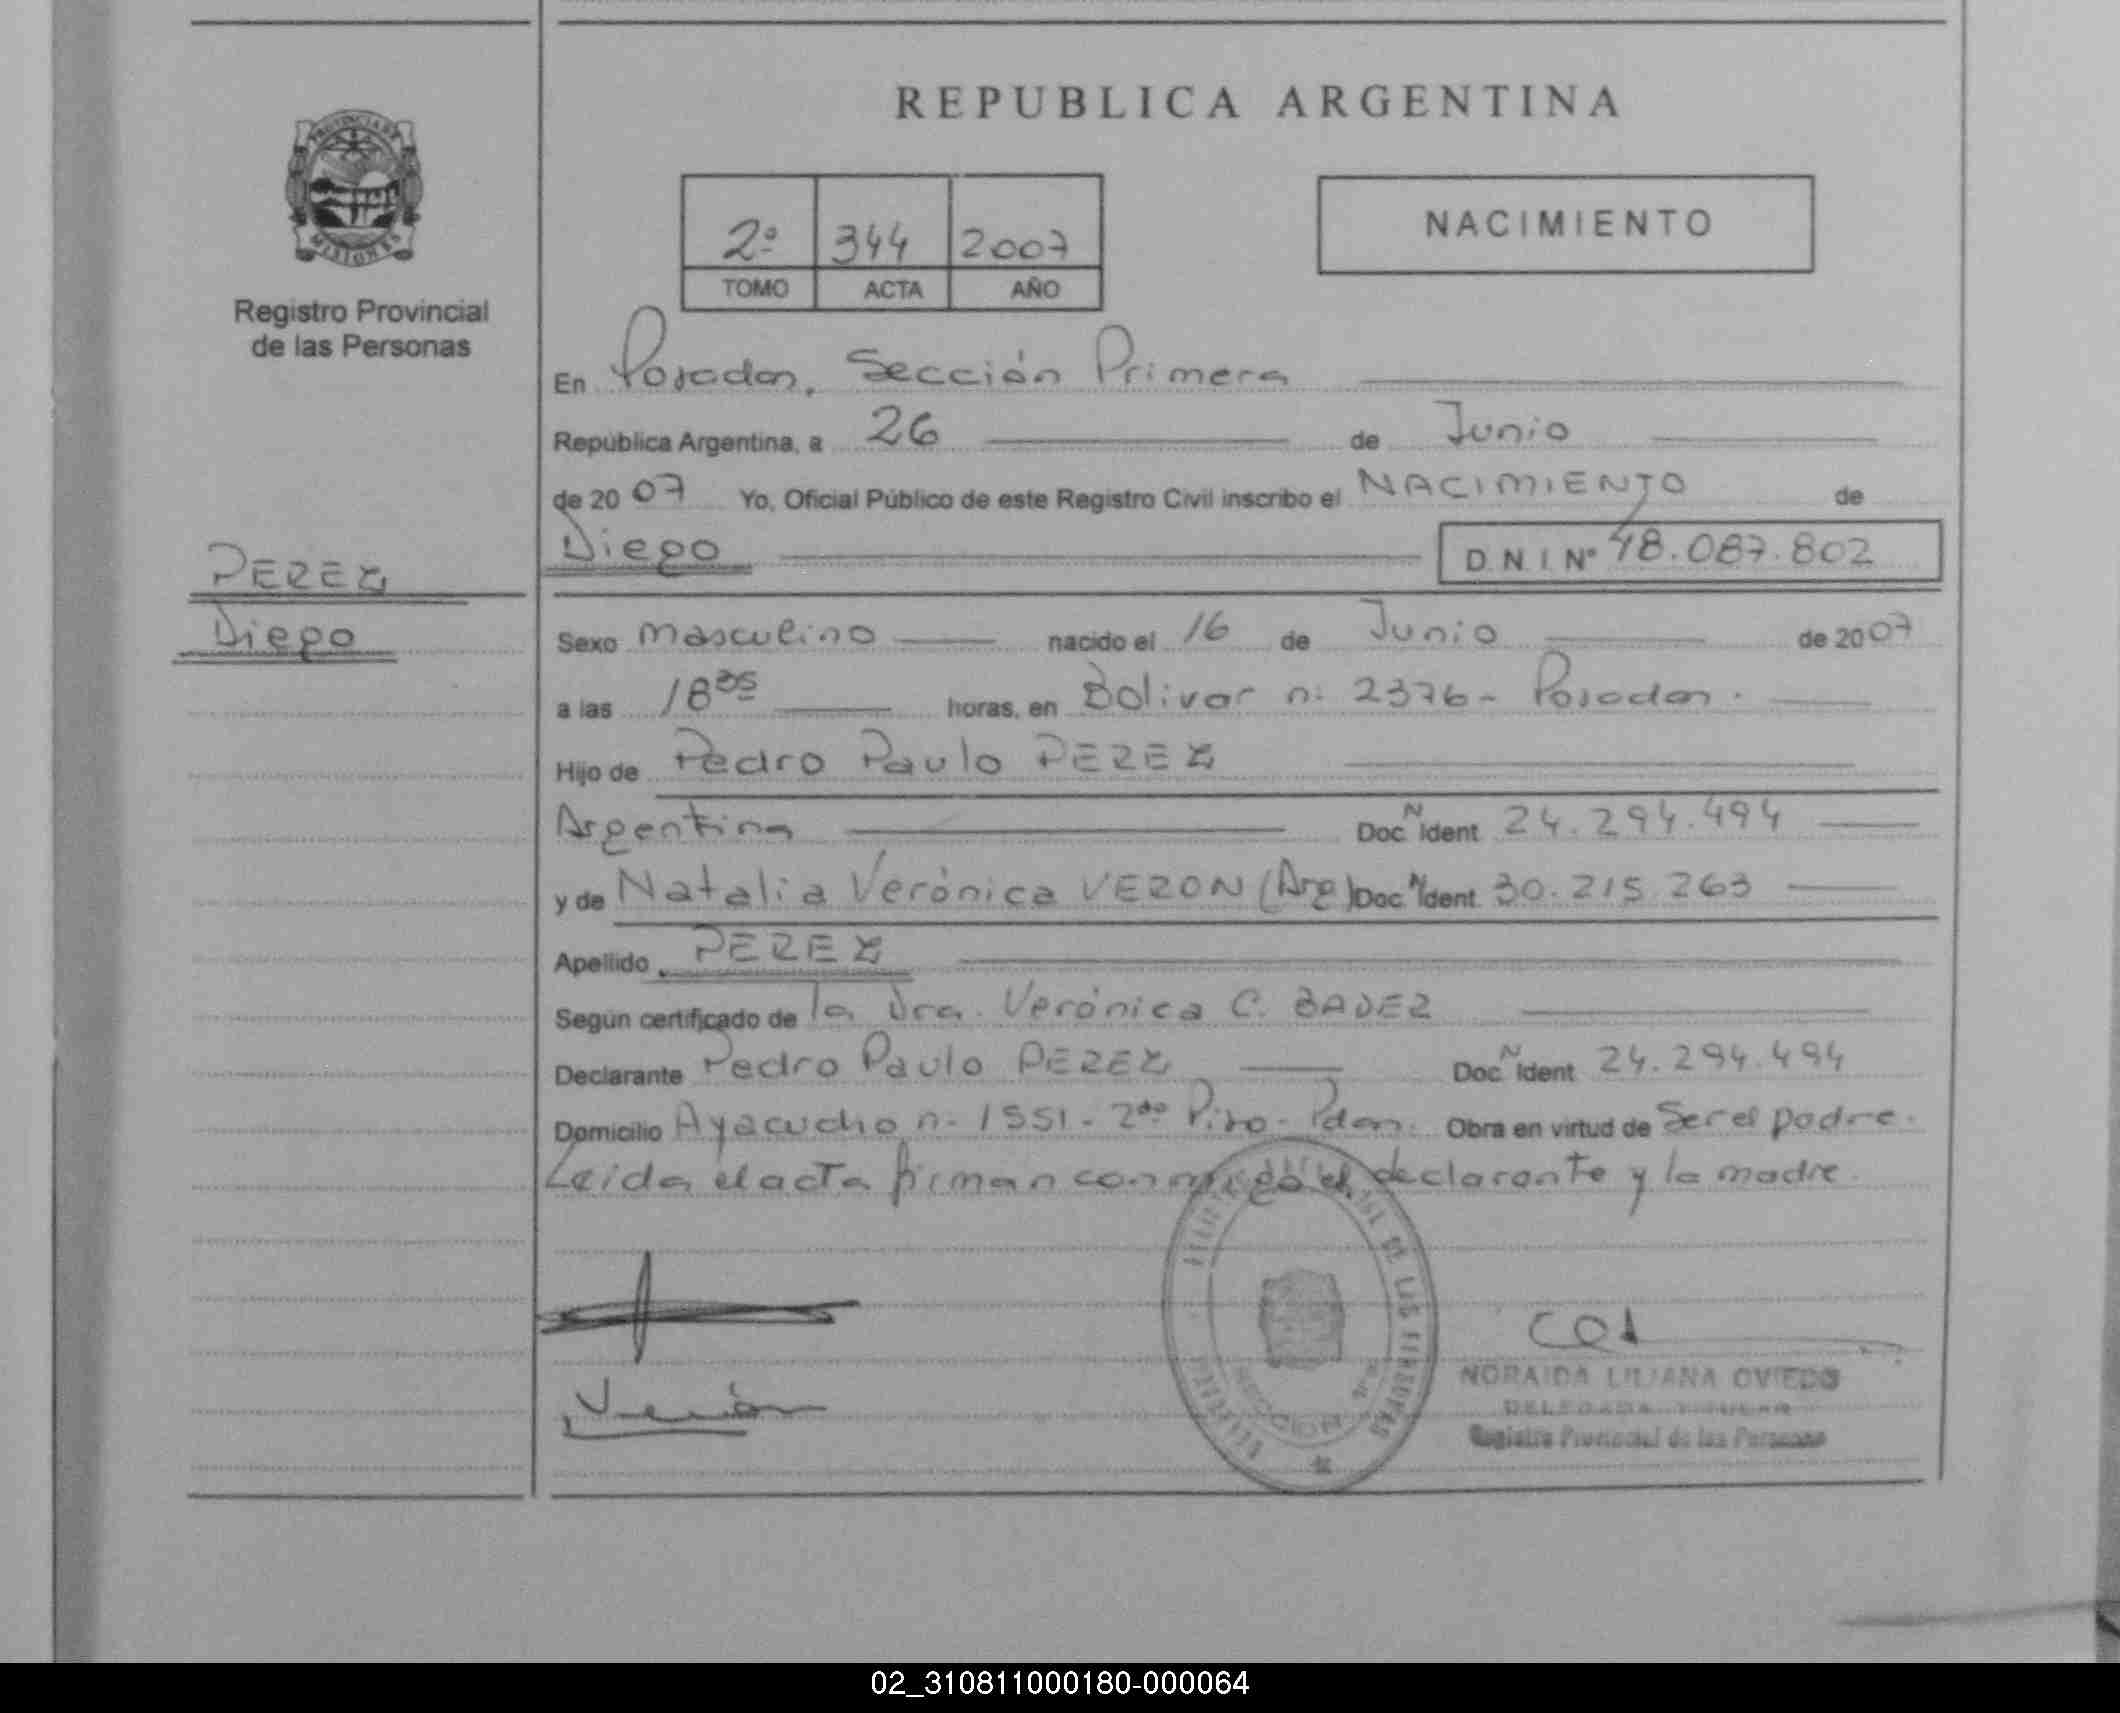 REPUBLICA ARGENTINA
PROVINCIA DE
MISIONES
Registro Provincial
de las Personas
2º 344 2007
TOMO ACTA AÑO
NACIMIENTO
En Posadas, Sección Primera
República Argentina, a 26 de Junio
de 2007 Yo, Oficial Público de este Registro Civil inscribo el NACIMIENTO de
Diego D.N.I. Nº 48.087.802
PEREZ
Diego
Sexo masculino nacido el 16 de Junio de 2007
a las 18 35 horas, en Bolivar n: 2376 - Posadas.
Hijo de Pedro Paulo PEREZ
Argentina Doc N Ident 24.294.494
y de Natalia Verónica VERON (Arg) Doc N Ident 30.215.263
Apellido PEREZ
Según certificado de la Dra. Verónica C. BADER
Declarante Pedro Paulo PEREZ Doc N Ident 24.294.494
Domicilio Ayacucho n: 1551 - 2do Piso - Pdas. Obra en virtud de Ser el padre.
Leida el acta firman conmigo el declarante y la madre.
NORAIDA LILIANA OVIEDO
DELEGADA TITULAR
Registro Provincial de las Personas
DE LAS PERSONAS
SECCION
02_310811000180-000064